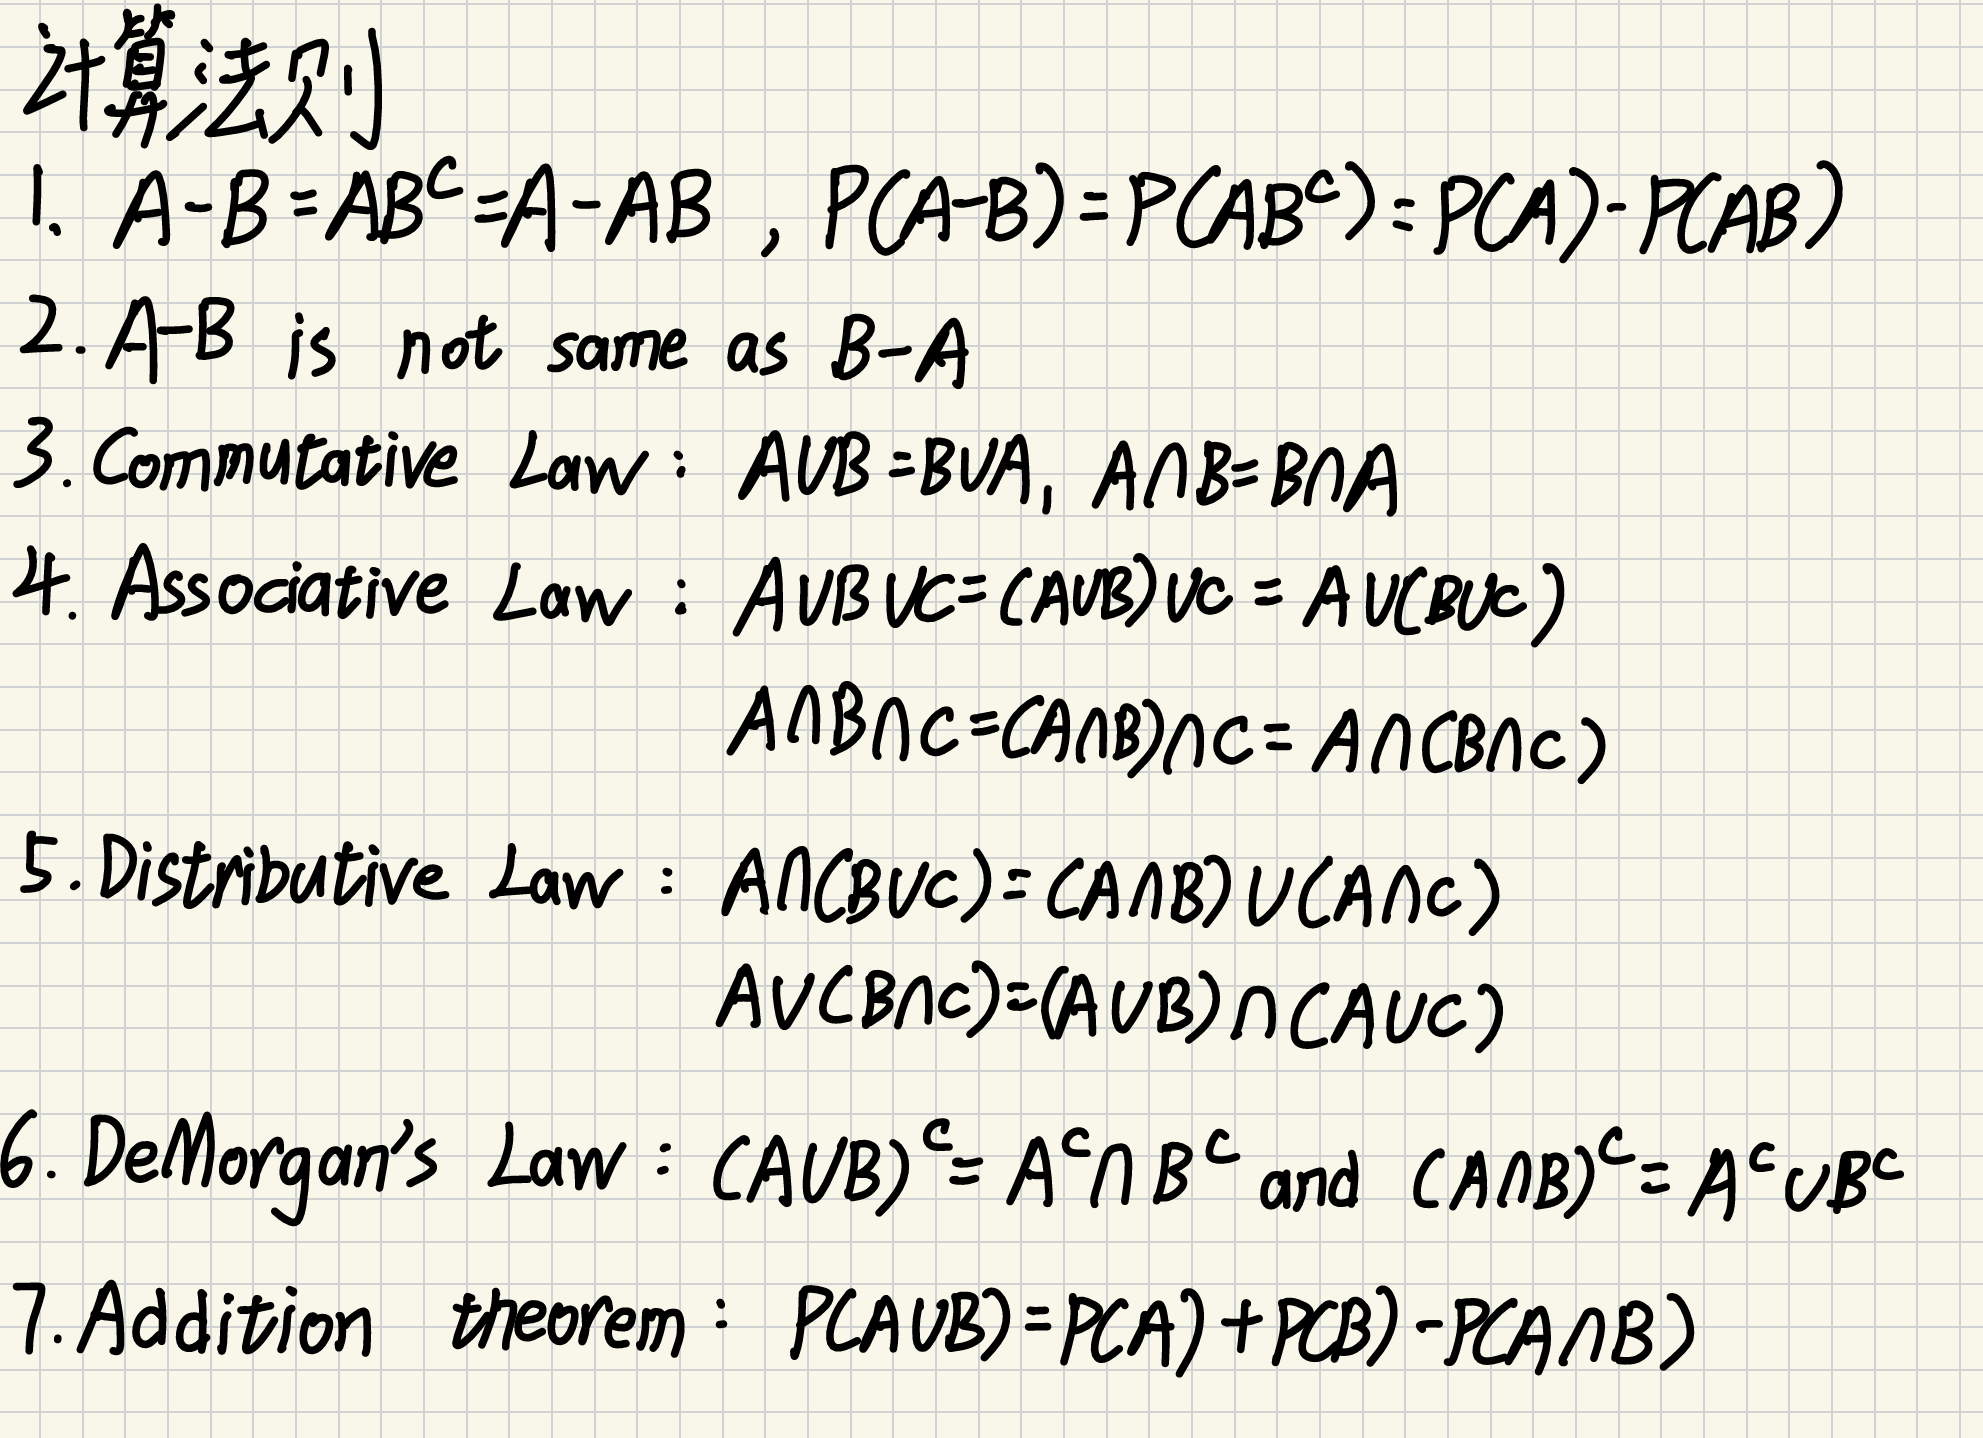 计算法则
1. A-B=ABᶜ=A-AB , P(A-B)=P(ABᶜ)=P(A)-P(AB)
2. A-B is not same as B-A
3. Commutative Law : A∪B=B∪A, A∩B=B∩A
4. Associative Law : A∪B∪C=(A∪B)∪C = A∪(B∪C)
A∩B∩C=(A∩B)∩C= A∩(B∩C)
5. Distributive Law : A∩(B∪C)=(A∩B)∪(A∩C)
A∪(B∩C)=(A∪B)∩(A∪C)
6. DeMorgan's Law : (A∪B)ᶜ= Aᶜ∩Bᶜ and (A∩B)ᶜ= Aᶜ∪Bᶜ
7. Addition theorem : P(A∪B)=P(A)+P(B)-P(A∩B)